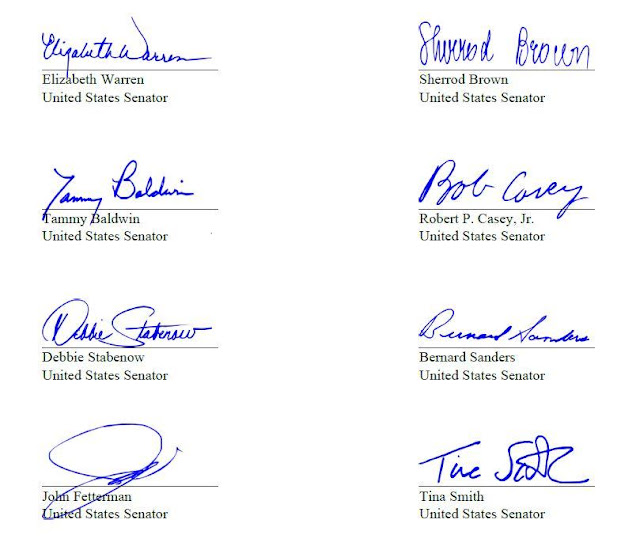 Elizabeth Warren
Sherrod Brown
Elizabeth Warren
Sherrod Brown
United States Senator
United States Senator
Tammy Baldwin
Bob Casey
Tammy Baldwin
Robert P. Casey, Jr.
United States Senator
United States Senator
Debbie Stabenow
Bernard Sanders
Debbie Stabenow
Bernard Sanders
United States Senator
United States Senator
Tina
John Fetterman
Tina Smith
United States Senator
United States Senator